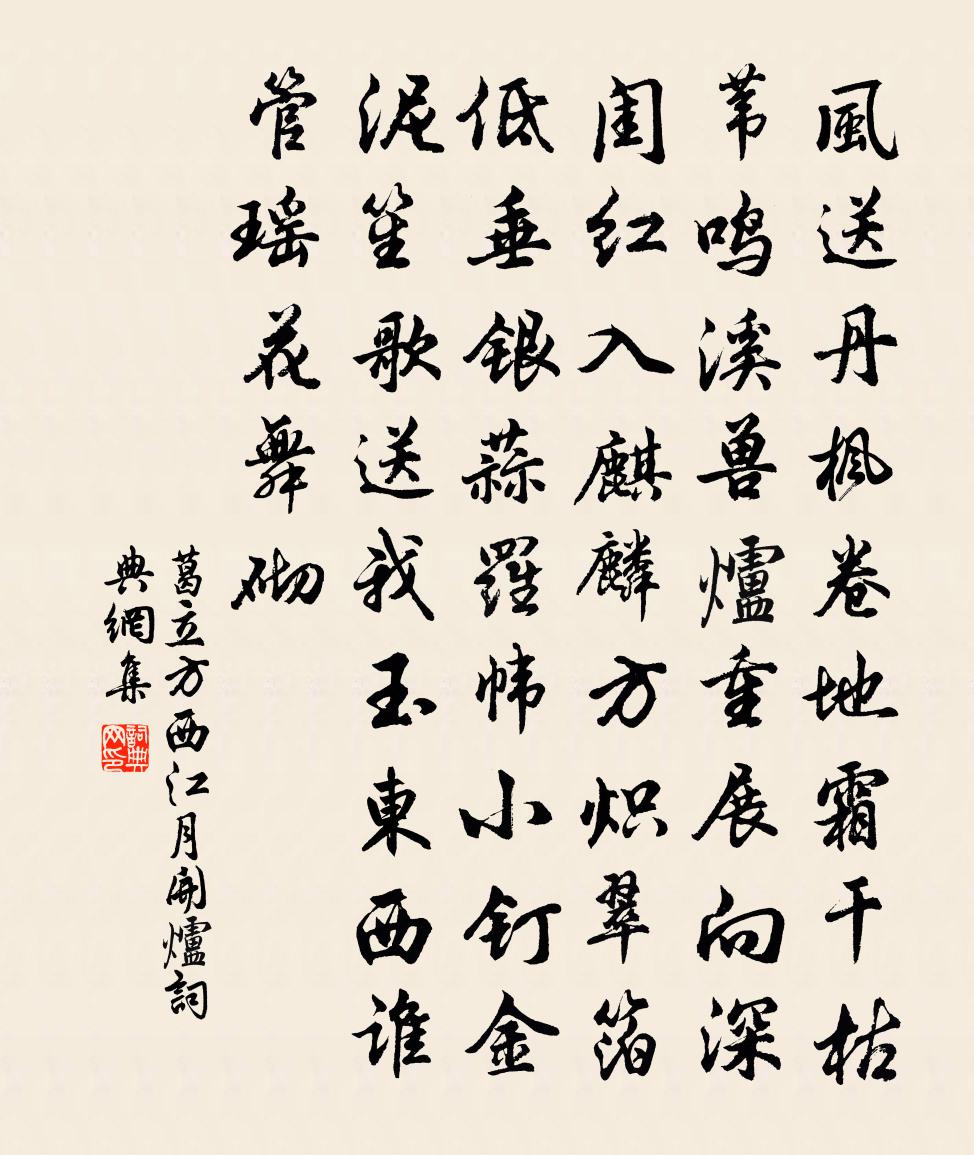 風送丹楓卷地霜干枯
苇鸣溪兽爐重展向深
闺红入麒麟方炽翠箔
低垂銀蒜羅帏小釘金
泥笙歌送我玉東西谁
管瑶花舞砌
葛立方西江月開爐詞
典網集
詞典网印